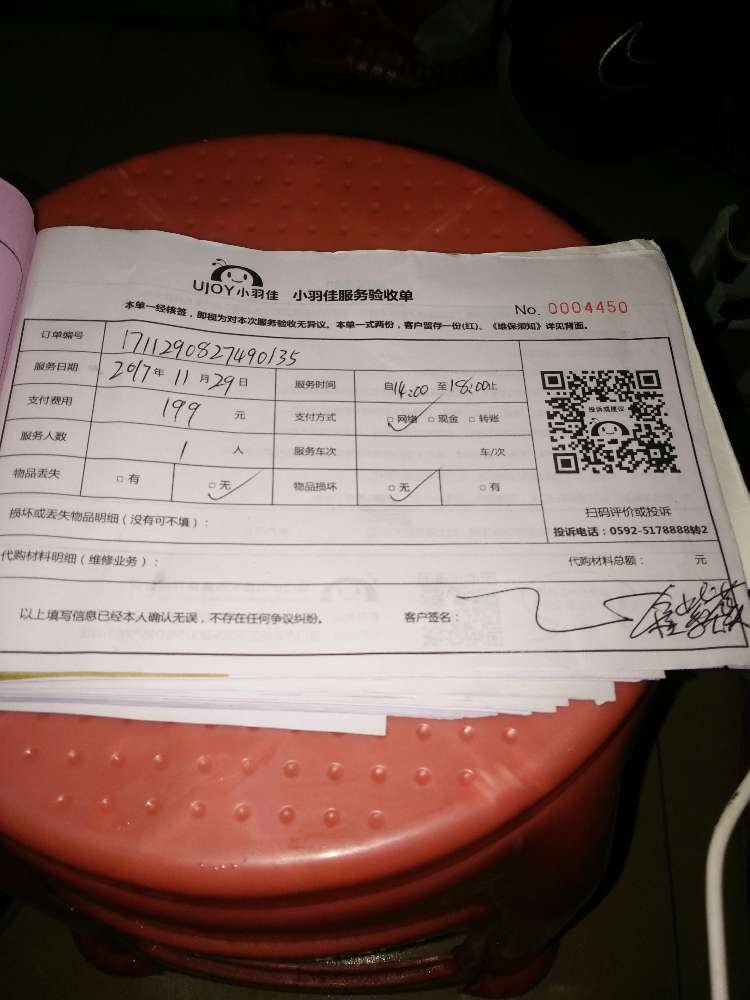 UJOY小羽佳 小羽佳服务验收单
No. 0004450
本单一经核签，即视为对本次服务验收无异议。本单一式两份，客户留存一份(红)、《维保须知》详见背面。
订单编号 1711290827490135
服务日期 2017年11月29日 服务时间 自14:00至18:00止
支付费用 199 元 支付方式 □网络 □现金 □转账
服务人数 1 人 服务车次 车/次
物品丢失 □有 □无 物品损坏 □无 □有
投诉或建议
扫码评价或投诉
投诉电话：0592-5178888转2
损坏或丢失物品明细（没有可不填）：
代购材料明细（维修业务）： 代购材料总额： 元
以上填写信息已经本人确认无误，不存在任何争议纠纷。 客户签名：